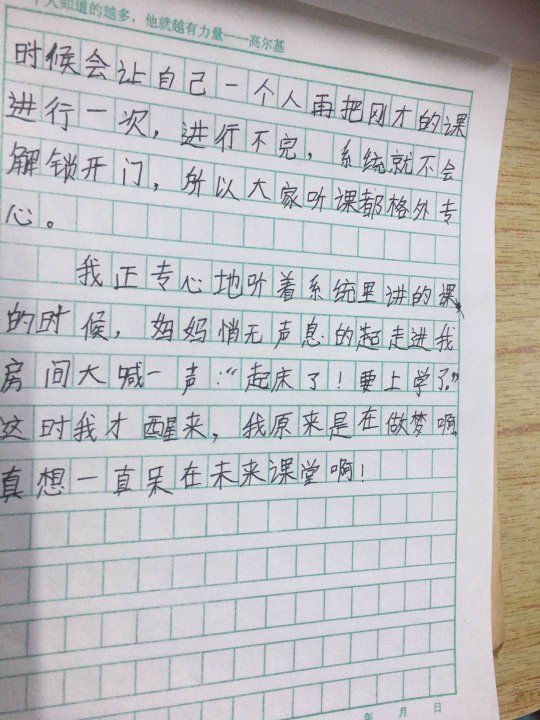 个人知道的越多，他就越有力量——高尔基
时候会让自己一个人再把刚才的课
进行一次，进行不完，系统就不会
解锁开门，所以大家听课都格外专
心。
我正专心地听着系统里讲的课
的时候，妈妈悄无声息的走进我
房间大喊一声："起床了！要上学了"
这时我才醒来，我原来是在做梦啊。
真想一直呆在未来课堂啊！
年 月 日